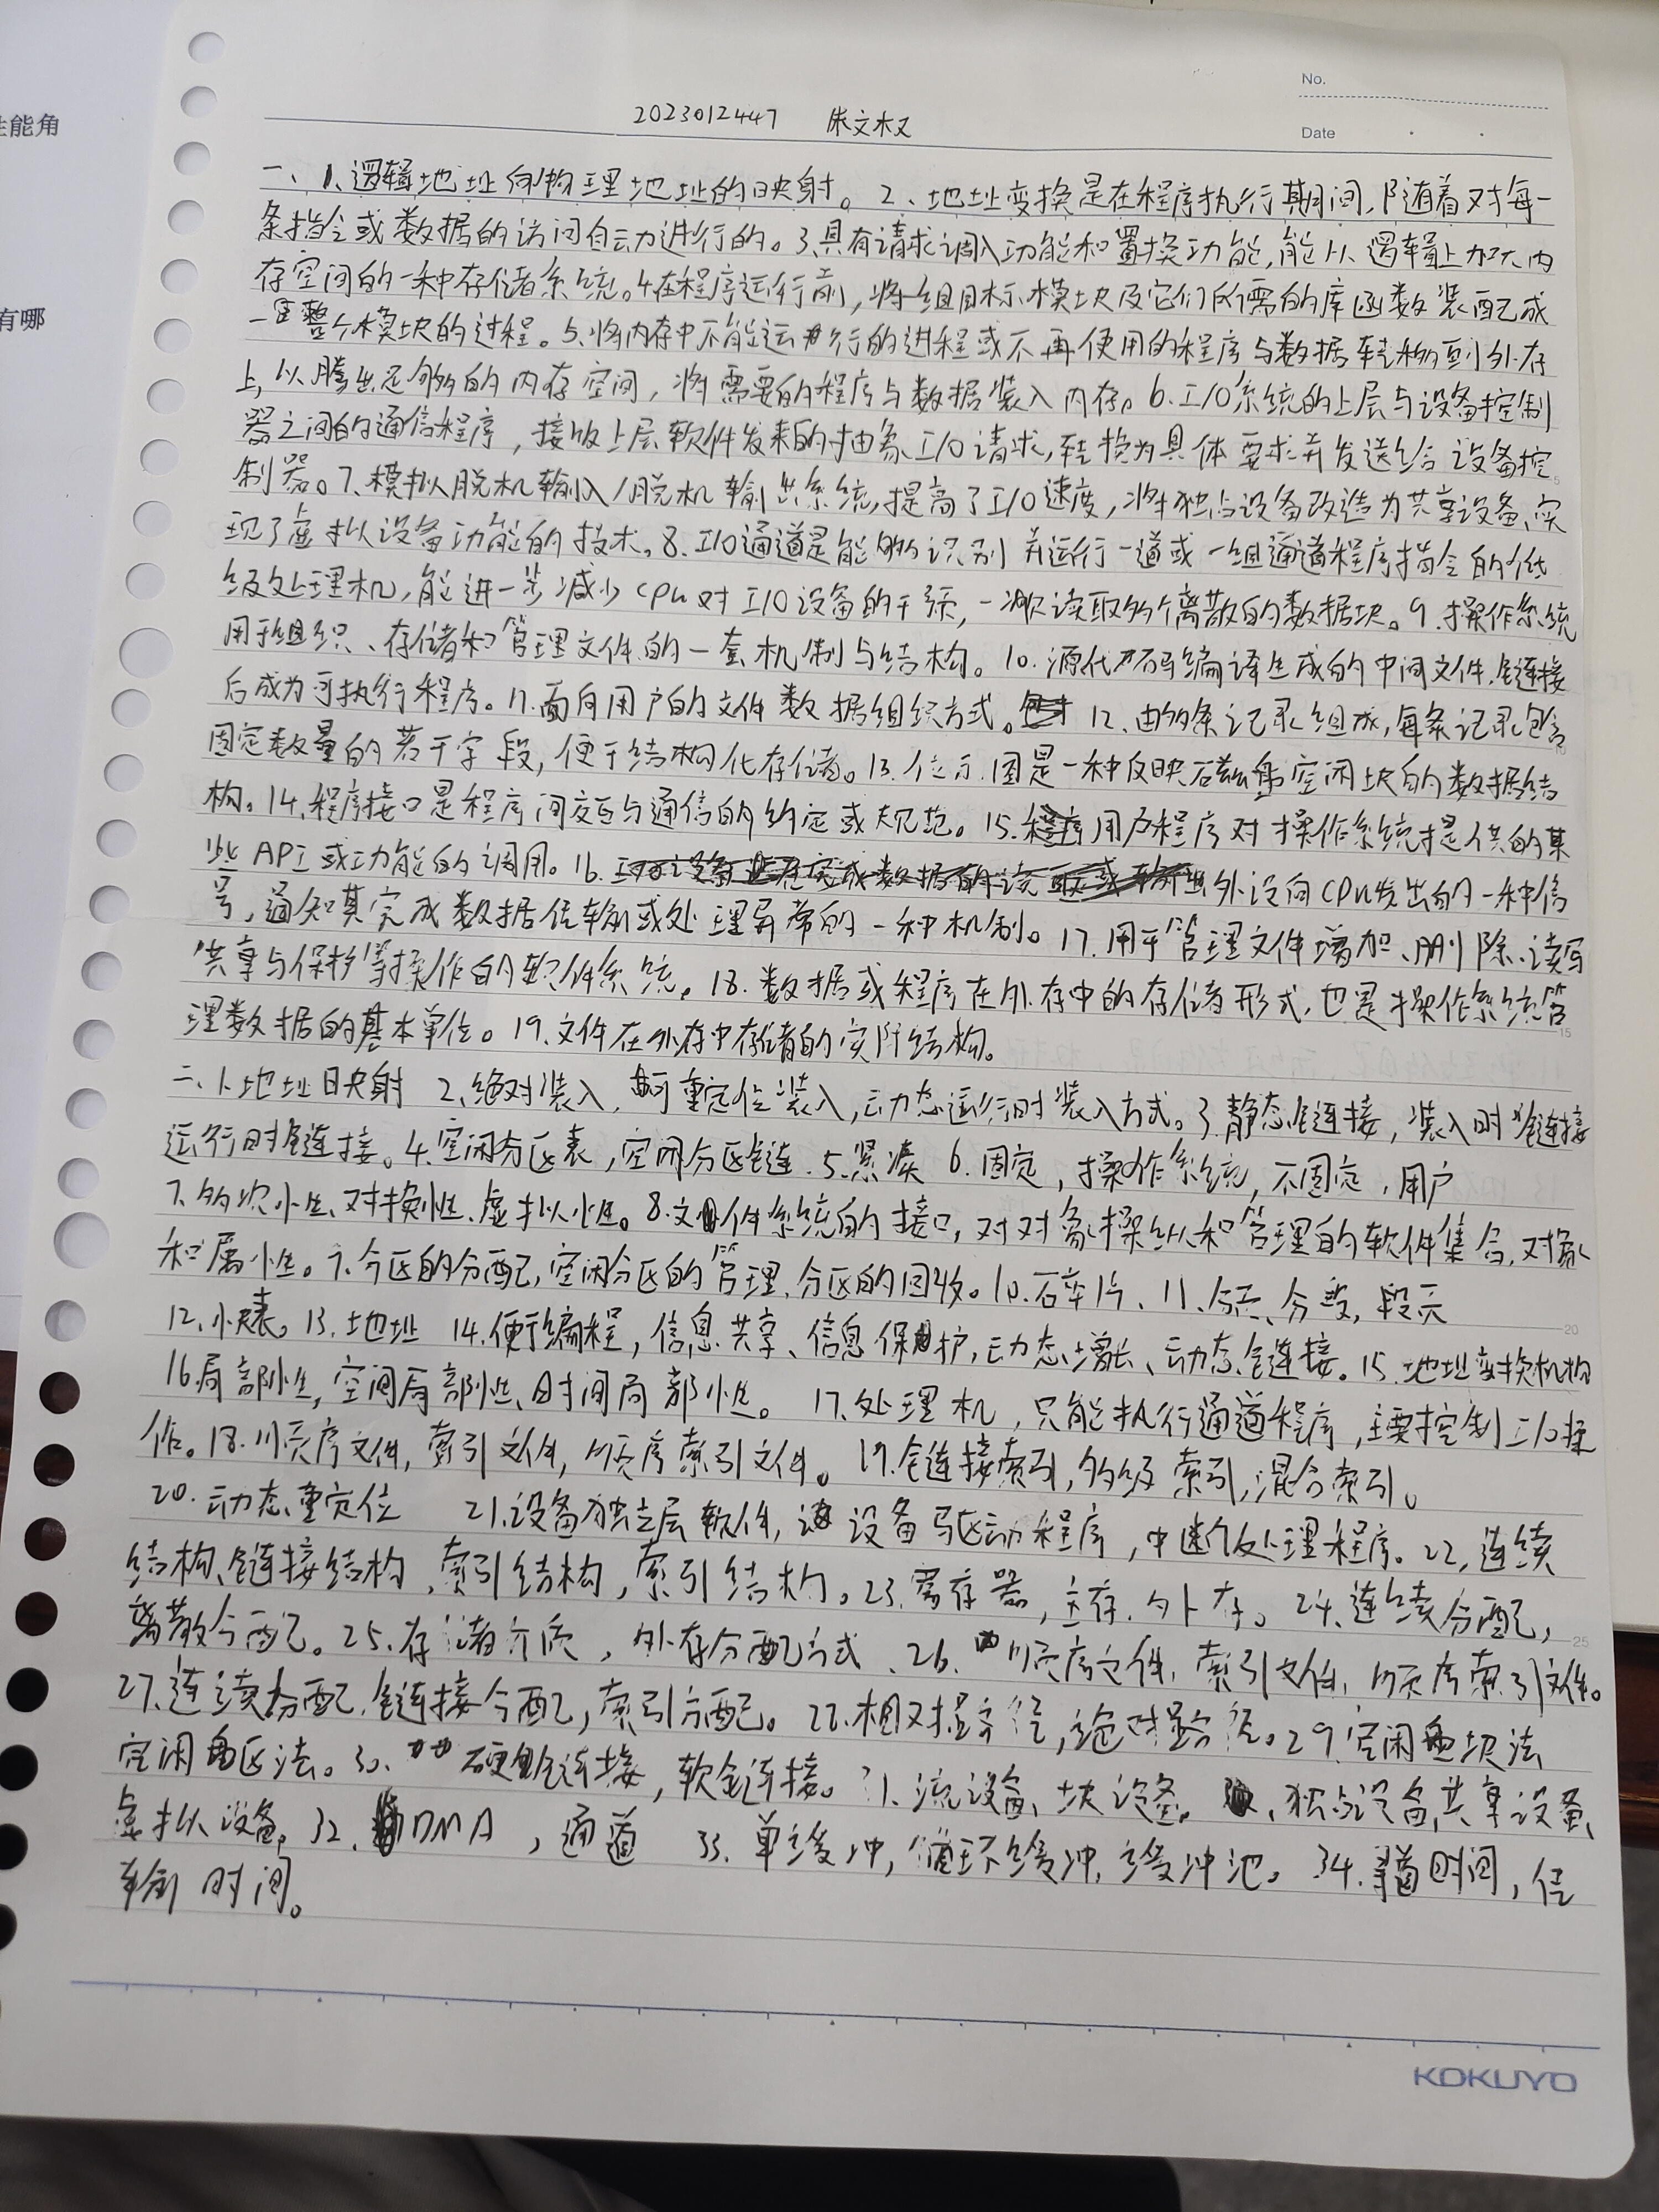 No.
Date
性能角
有哪
2023012447 朱文权
一、1、逻辑地址向物理地址的映射。2、地址变换是在程序执行期间,随着对每一
条指令或数据的访问自动进行的。3、具有请求调入功能和置换功能,能从逻辑上加大内
存空间的一种存储系统。4、在程序运行前,将组目标模块及它们所需的库函数装配成
一个整个模块的过程。5、将内存中不能运行的进程或不再使用的程序与数据转移到外存
上,以腾出足够的内存空间,将需要的程序与数据装入内存。6、I/O系统的上层与设备控制
器之间的通信程序,接收上层软件发来的抽象I/O请求,转换为具体要求并发送给设备控
制器。7、模拟脱机输入/脱机输出系统,提高了I/O速度,将独占设备改造为共享设备,实
现了虚拟设备功能的技术。8、I/O通道是能够识别并运行一道或一组通道程序指令的低
级处理机,能进一步减少CPU对I/O设备的干预,一次读取多个离散的数据块。9、操作系统
用于组织、存储和管理文件的一套机制与结构。10、源代码编译生成的中间文件,链接
后成为可执行程序。11、面向用户的文件数据组织方式。12、由多条记录组成,每条记录包含
固定数量的若干字段,便于结构化存储。13、位示图是一种反映磁盘空闲块的数据结
构。14、程序接口是程序间交互与通信的约定或规范。15、用户程序对操作系统提供的某
些API或功能的调用。16、外设向CPU发出的一种信
号,通知其完成数据传输或处理异常的一种机制。17、用于管理文件增加、删除、读写
共享与保护等操作的软件系统。18、数据或程序在外存中的存储形式,也是操作系统管
理数据的基本单位。19、文件在外存中存储的实际结构。
二、1、地址映射 2、绝对装入,可重定位装入,动态运行时装入方式。3、静态链接,装入时链接
运行时链接。4、空闲分区表,空闲分区链 5、紧凑 6、固定,操作系统,不固定,用户
7、多次性、对换性、虚拟性。8、文件系统的接口,对对象操纵和管理的软件集合,对象
和属性。9、分区的分配,空闲分区的管理,分区的回收。10、碎片、11、分页、分段,段页
12、快表。13、地址 14、便于编程,信息共享、信息保护,动态增长、动态链接。15、地址变换机构
16、局部性,空间局部性、时间局部性。17、处理机,只能执行通道程序,主要控制I/O操
作。18、顺序文件,索引文件,顺序索引文件。19、链接索引,多级索引,混合索引。
20、动态重定位 21、设备独立层软件,设备驱动程序,中断处理程序。22、连续
结构、链接结构,索引结构,索引结构。23、寄存器,主存,外存。24、连续分配,
离散分配。25、存储介质,外存分配方式、26、顺序文件,索引文件,顺序索引文件。
27、连续分配,链接分配,索引分配。28、相对路径,绝对路径。29、空闲盘块法
空闲盘区法。30、硬链接,软链接。31、流设备、块设备,、独占设备,共享设备,
虚拟设备, 32、DMA,通道 33、单缓冲,循环缓冲,缓冲池。34、寻道时间,传
输时间。
KOKUYO